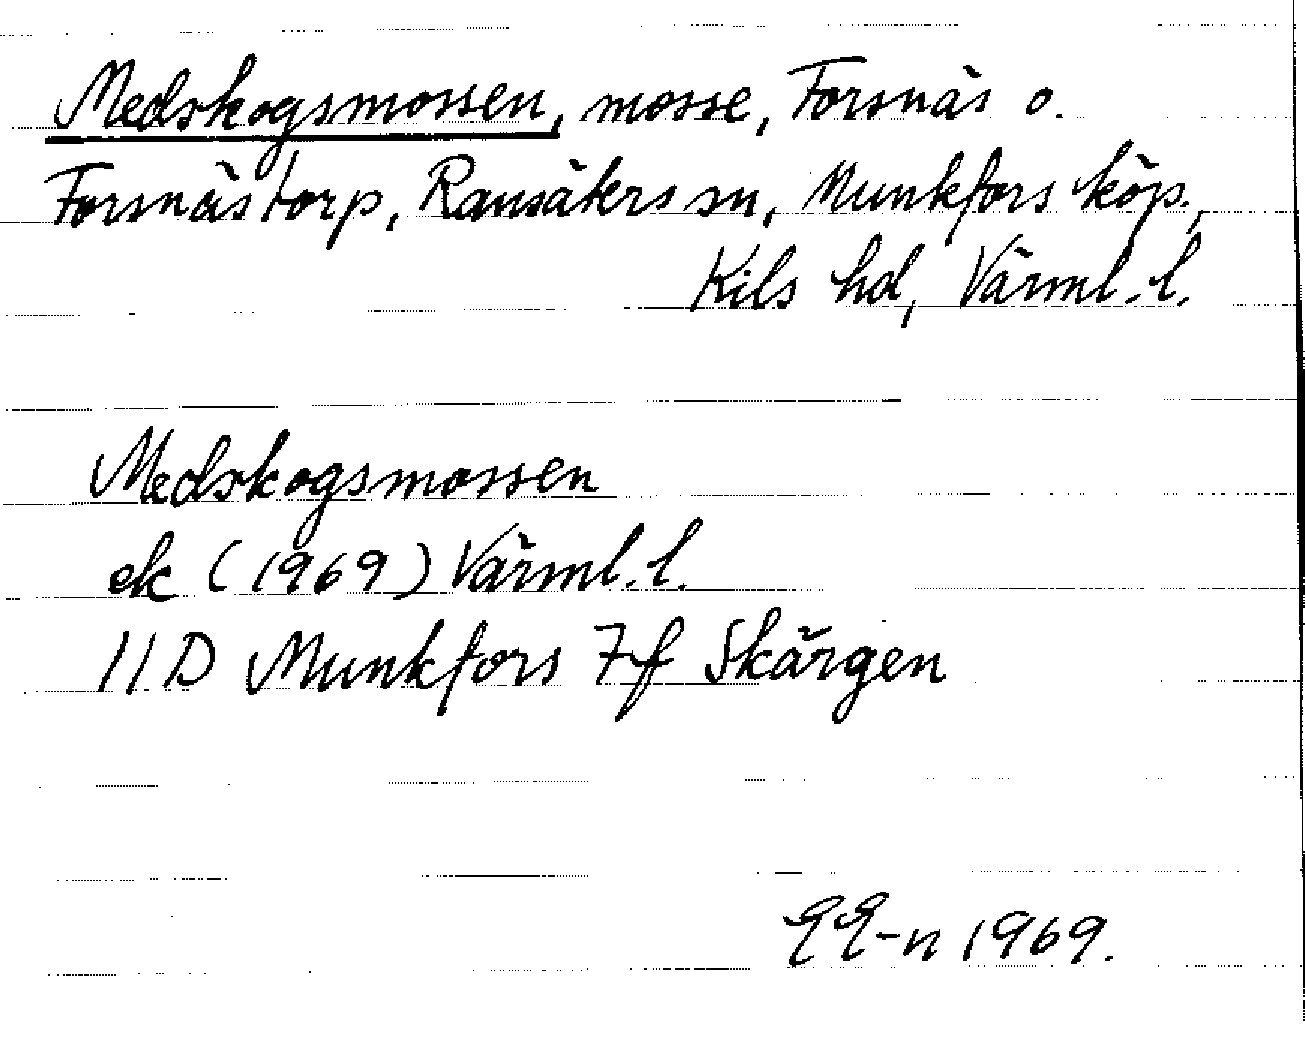 Medskogsmossen, mosse, Forsnäs o.
Forsnästorp, Ransäters sn, Munkfors köp.,
Kils hd, Värml. l.
Medskogsmossen
ek (1969) Värml. l.
11D Munkfors 7f Skärgen
EE-n 1969.